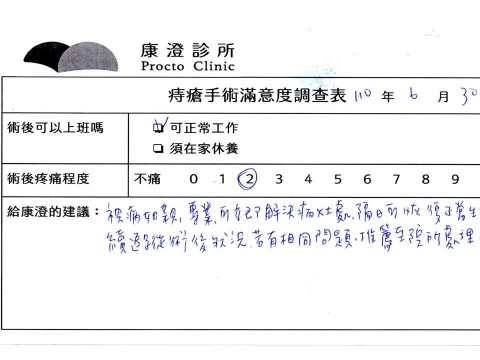 康澄診所
Procto Clinic
痔瘡手術滿意度調查表 110 年 6 月 30
術後可以上班嗎
可正常工作
須在家休養
術後疼痛程度 不痛 0 1 2 3 4 5 6 7 8 9
給康澄的建議：視病如親,專業,所立即解決病灶處,隔日即恢復正常生
續追蹤術後狀況.若有相同問題,推薦至院所處理